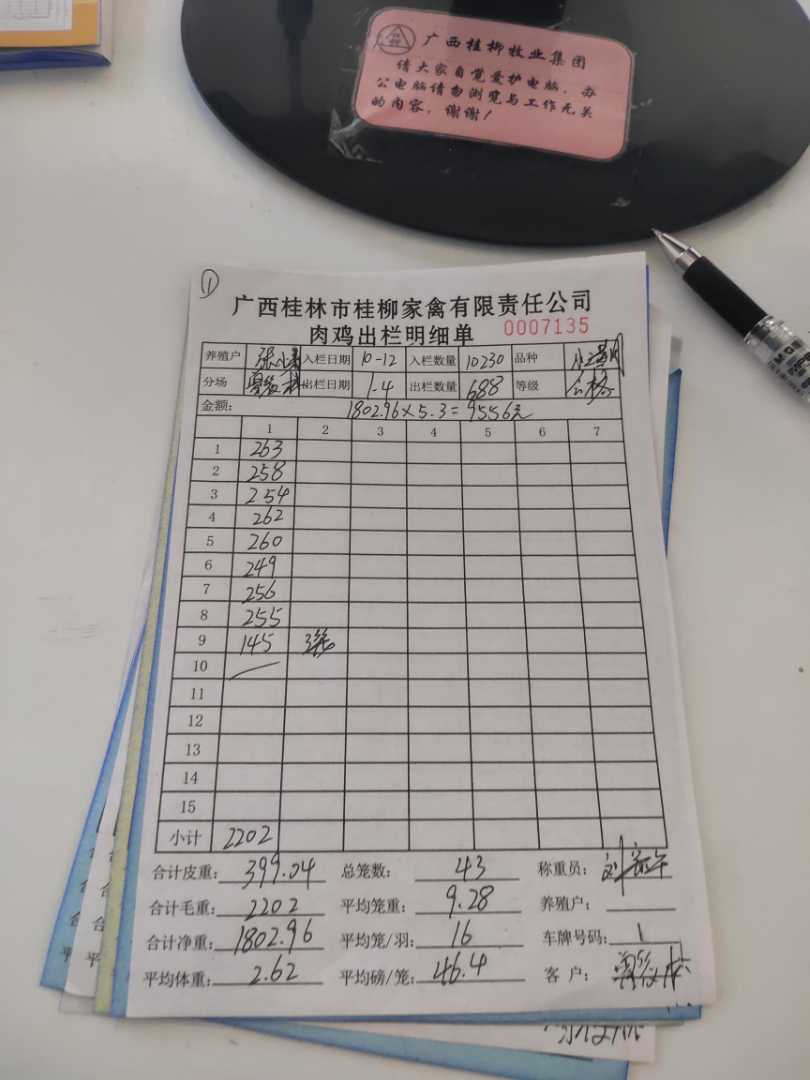 广西桂柳牧业集团
请大家自觉爱护电脑，办
公电脑请勿浏览与工作无关
的内容，谢谢！
①
广西桂林市桂柳家禽有限责任公司
肉鸡出栏明细单 0007135
养殖户 入栏日期 10-12 入栏数量 10230 品种
分场 出栏日期 1-4 出栏数量 688 等级 公格
金额： 1802.96×5.3=9556元
1 2 3 4 5 6 7
1 263
2 258
3 254
4 262
5 260
6 249
7 256
8 255
9 145 3笼
10
11
12
13
14
15
小计 2202
合计皮重： 399.04 总笼数： 43 称重员：
合计毛重： 2202 平均笼重： 9.28 养殖户：
合计净重： 1802.96 平均笼/羽： 16 车牌号码： 1
平均体重： 2.62 平均磅/笼： 46.4 客 户：